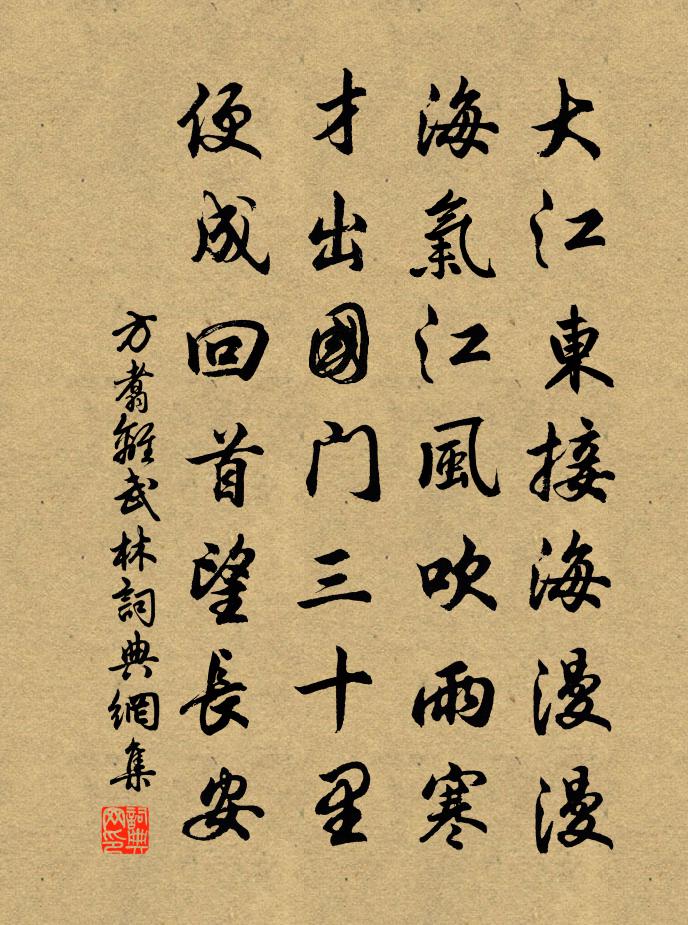 大江東接海漫漫
海氣江風吹雨寒
才出國門三十里
便成回首望長安
方翥離武林詞典網集
詞典网印